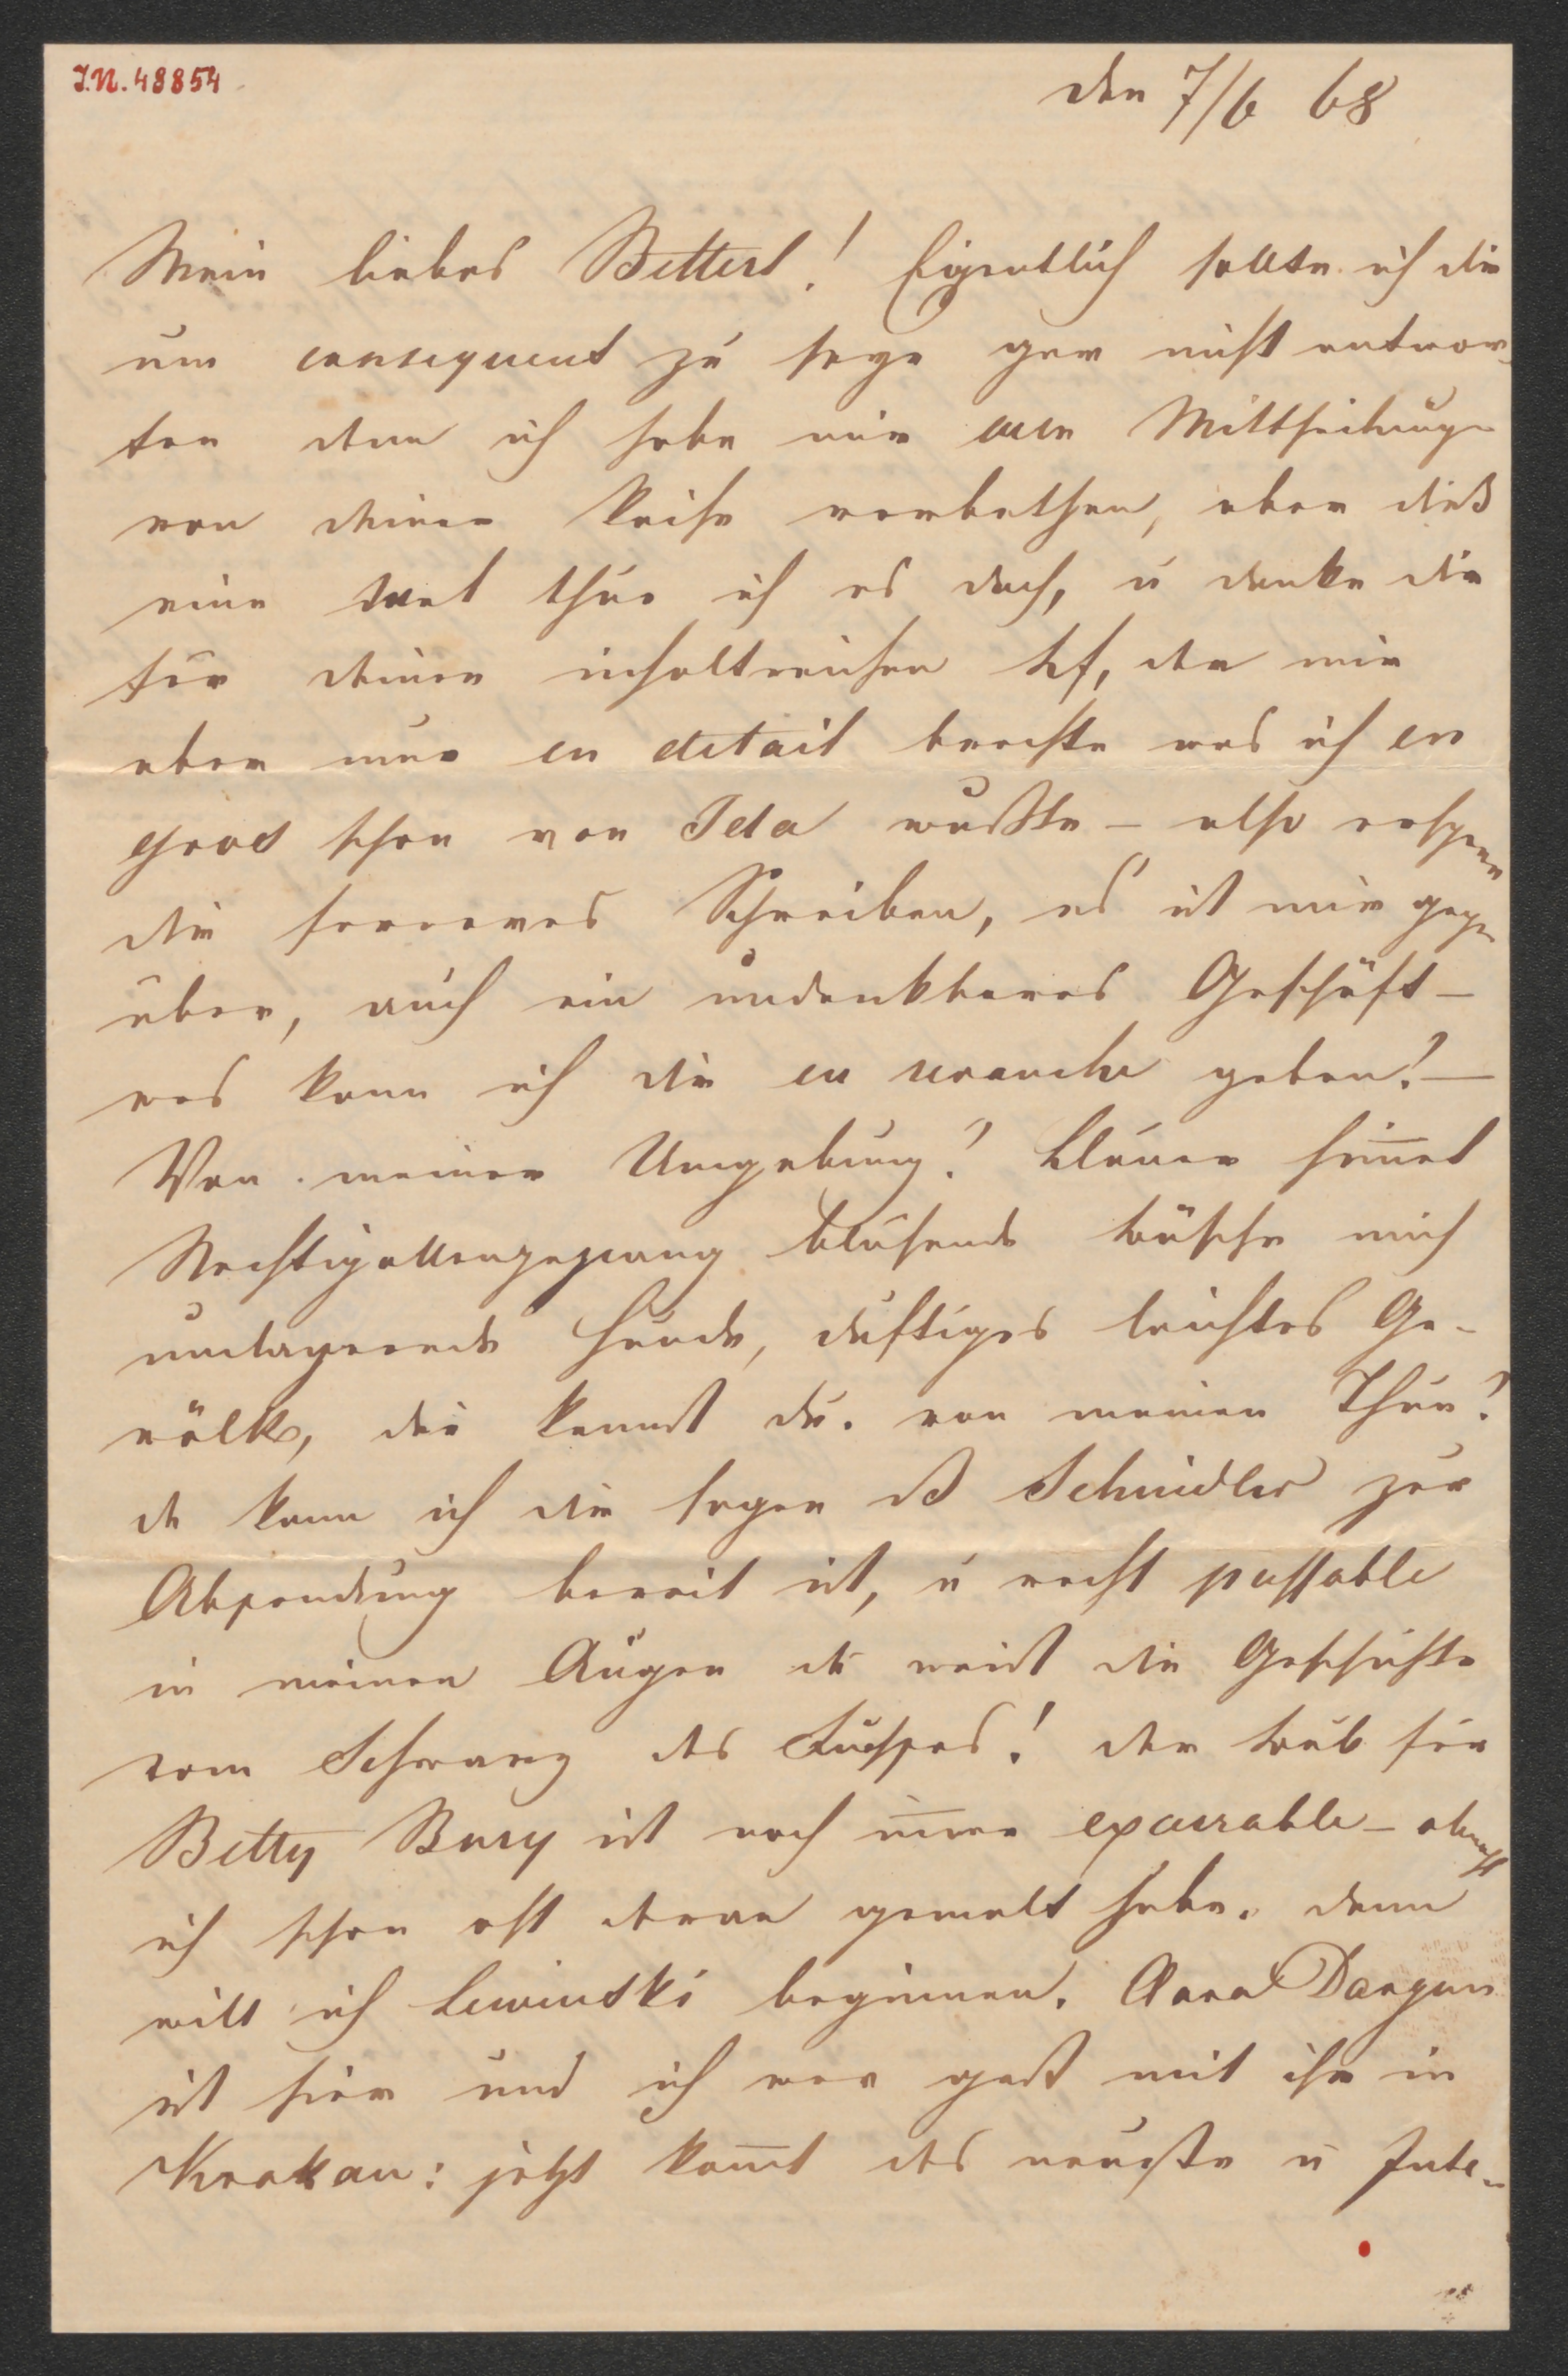 I.N. 48854
den 7/6 68
Mein liebes Betterl! Eigentlich sollte ich dir
um consequent zu sey gar nicht antwor-
ten denn ich habe mir alle Mittheilunge
von deiner Reise verbethen, aber dieß
eine Mal thue ich es doch, u danke dir
für deinen inhaltreichen Bf, der mir
aber nur en detail brachte was ich en
gros schon von Ida wußte – also erspare
dir ferneres Schreiben, es ist mir gege
über, auch ein undankbares Geschäft –
was kann ich dir en revanche geben? –
Von meiner Umgebung? blauer Himel
Nachtigallengesang blühende Büsche mich
umlagernde Hunde, duftiges leichtes Ge-
wölk, die kennst du. von meinen Thun?
da kann ich dir sagen dß Schindler zur
Absendung bereit ist, u recht passable
in meinen Augen du weist die Geschichte
vom Schwanz des Fuchses! der Bub für
Betty Bury ist noch imer execrable – obwohl
ich schon oft daran gemalt habe. dann
will ich Lewinski beginnen. Clara Dargun
ist hier und ich war gest mit ihr in
Krakau: jetzt komt das neuste u Inte-